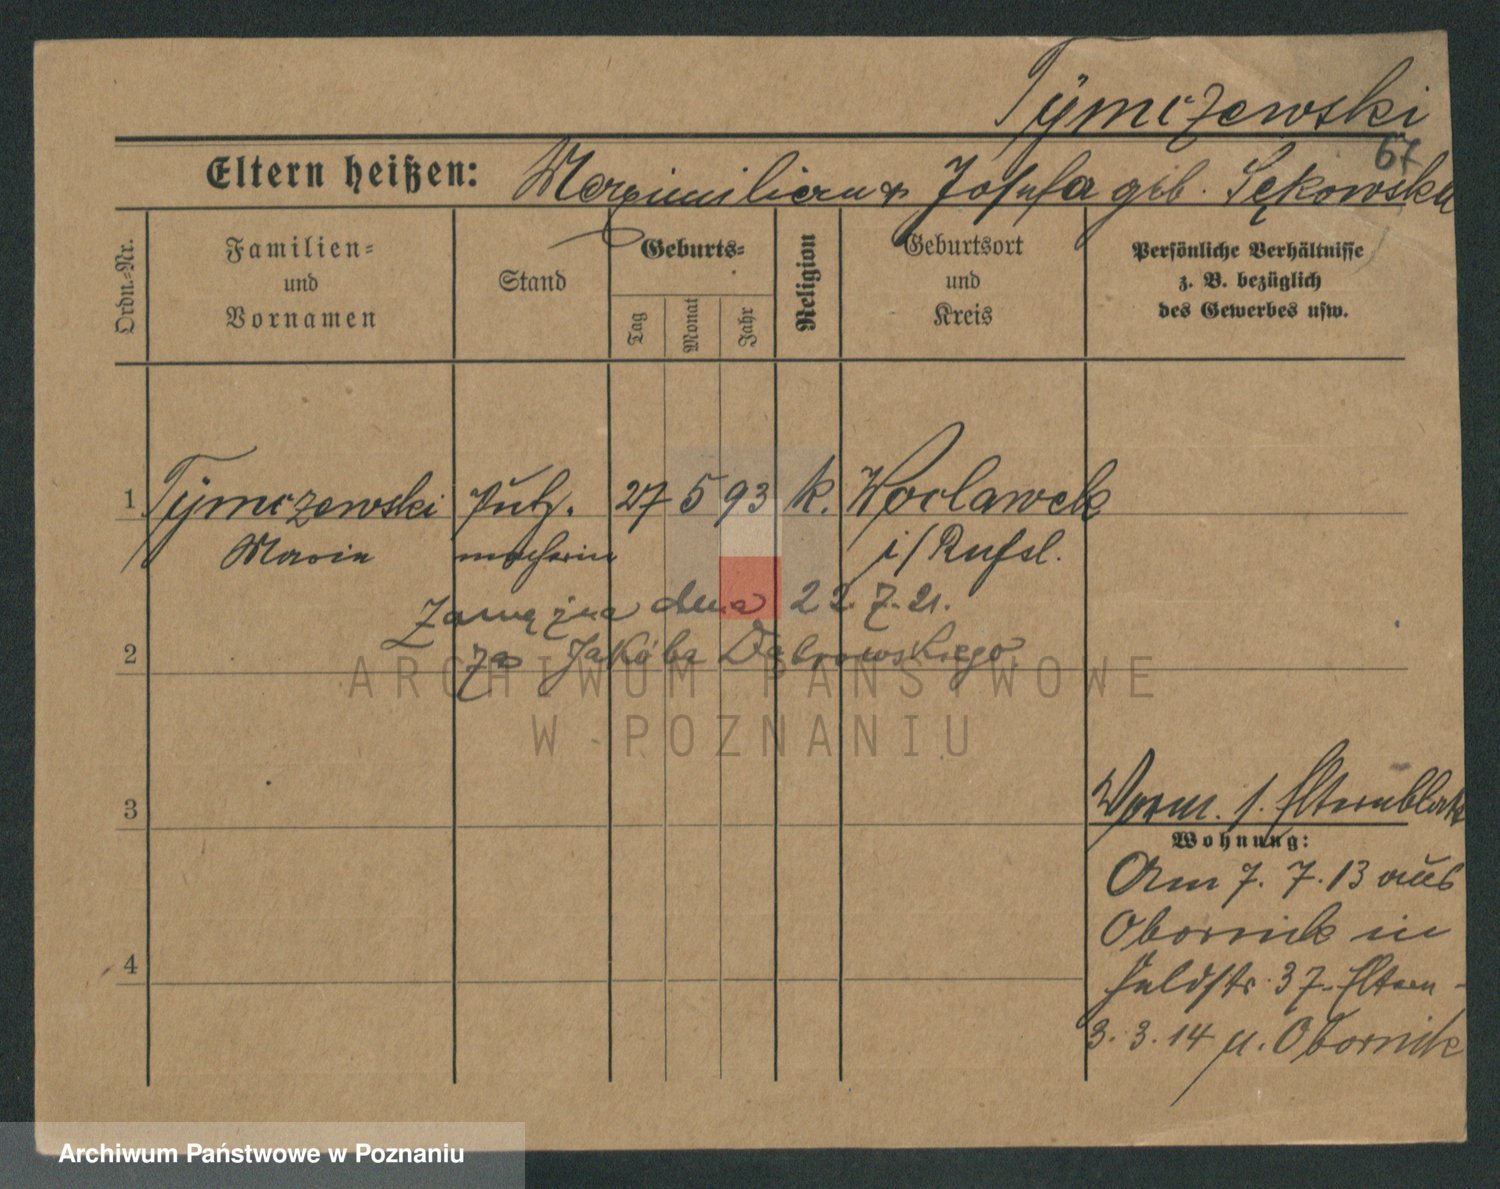 Tÿmczewski
67
Eltern heißen: Maximilian & Josefa geb. Sękowska
Ordn.-Nr.
Familien-
und
Vornamen
Stand
Geburts-
Tag
Monat
Jahr
Religion
Geburtsort
und
Kreis
Persönliche Verhältnisse
z. B. bezüglich
des Gewerbes usw.
1 Tÿmczewski Putz- 27 5 93 k. Woclawek
Marie macherin i/Rußl.
Zamężna dnia 22.7.21.
2 za Jakóba Dąbrowskiego
ARCHIWUM PAŃSTWOWE
W POZNANIU
3
Vorm. s. Elternblatt
Wohnung:
Am 7. 7. 13 aus
Obornik in
4
Feldstr. 37. Eltern -
3. 3. 14 n. Obornik
Archiwum Państwowe w Poznaniu